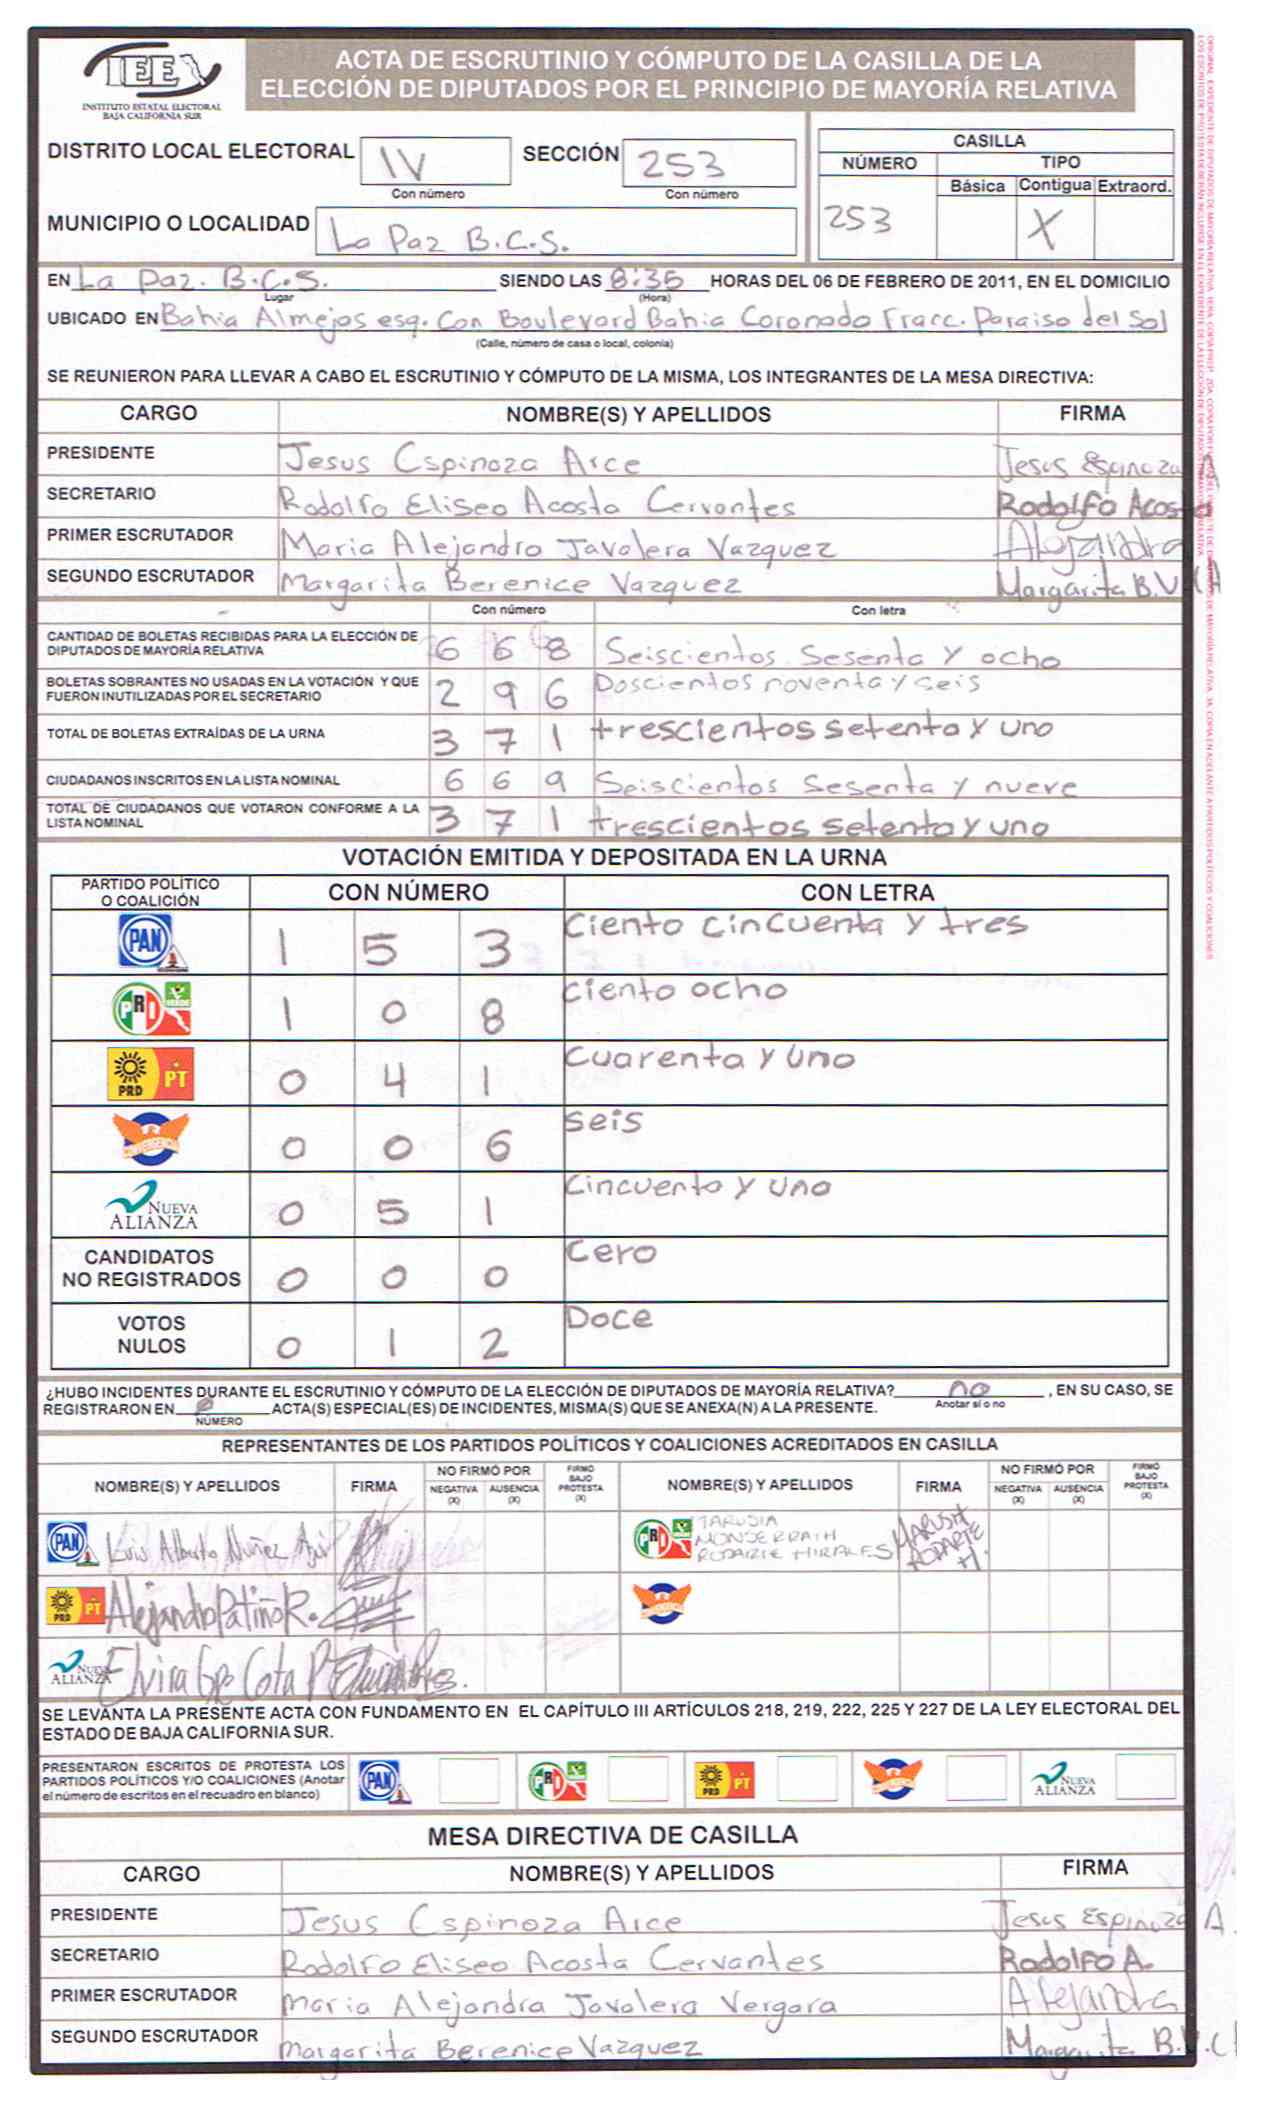 IEE
INSTITUTO ESTATAL ELECTORAL
BAJA CALIFORNIA SUR
ACTA DE ESCRUTINIO Y CÓMPUTO DE LA CASILLA DE LA
ELECCIÓN DE DIPUTADOS POR EL PRINCIPIO DE MAYORÍA RELATIVA
DISTRITO LOCAL ELECTORAL IV SECCIÓN 253
Con número Con número
MUNICIPIO O LOCALIDAD La Paz B.C.S.
CASILLA
NÚMERO TIPO
Básica Contigua Extraord.
253 X
EN La Paz. B.C.S. SIENDO LAS 8:35 HORAS DEL 06 DE FEBRERO DE 2011, EN EL DOMICILIO
Lugar (Hora)
UBICADO EN Bahia Almejas esq. Con Boulevard Bahia Coronado Fracc. Paraiso del Sol
(Calle, número de casa o local, colonia)
SE REUNIERON PARA LLEVAR A CABO EL ESCRUTINIO Y CÓMPUTO DE LA MISMA, LOS INTEGRANTES DE LA MESA DIRECTIVA:
CARGO NOMBRE(S) Y APELLIDOS FIRMA
PRESIDENTE Jesus Espinoza Arce Jesus Espinoza A
SECRETARIO Rodolfo Eliseo Acosta Cervantes Rodolfo Acosta
PRIMER ESCRUTADOR Maria Alejandra Javalera Vazquez Alejandra
SEGUNDO ESCRUTADOR Margarita Berenice Vazquez Margarita B.V.
Con número Con letra
CANTIDAD DE BOLETAS RECIBIDAS PARA LA ELECCIÓN DE
DIPUTADOS DE MAYORÍA RELATIVA 6 6 8 Seiscientos Sesenta y ocho
BOLETAS SOBRANTES NO USADAS EN LA VOTACIÓN Y QUE
FUERON INUTILIZADAS POR EL SECRETARIO 2 9 6 Doscientos noventa y seis
TOTAL DE BOLETAS EXTRAÍDAS DE LA URNA 3 7 1 trescientos setenta y uno
CIUDADANOS INSCRITOS EN LA LISTA NOMINAL 6 6 9 Seiscientos Sesenta y nueve
TOTAL DE CIUDADANOS QUE VOTARON CONFORME A LA
LISTA NOMINAL 3 7 1 trescientos setenta y uno
VOTACIÓN EMITIDA Y DEPOSITADA EN LA URNA
PARTIDO POLÍTICO
O COALICIÓN CON NÚMERO CON LETRA
PAN 1 5 3 Ciento cincuenta y tres
PRI VERDE 1 0 8 Ciento ocho
PRD PT 0 4 1 Cuarenta y uno
CONVERGENCIA 0 0 6 Seis
NUEVA ALIANZA 0 5 1 Cincuenta y uno
CANDIDATOS
NO REGISTRADOS 0 0 0 Cero
VOTOS
NULOS 0 1 2 Doce
¿HUBO INCIDENTES DURANTE EL ESCRUTINIO Y CÓMPUTO DE LA ELECCIÓN DE DIPUTADOS DE MAYORÍA RELATIVA? no , EN SU CASO, SE
Anotar sí o no
REGISTRARON EN ø ACTA(S) ESPECIAL(ES) DE INCIDENTES, MISMA(S) QUE SE ANEXA(N) A LA PRESENTE.
NÚMERO
REPRESENTANTES DE LOS PARTIDOS POLÍTICOS Y COALICIONES ACREDITADOS EN CASILLA
NOMBRE(S) Y APELLIDOS FIRMA NO FIRMÓ POR NEGATIVA (X) AUSENCIA (X) FIRMÓ BAJO PROTESTA (X) NOMBRE(S) Y APELLIDOS FIRMA NO FIRMÓ POR NEGATIVA (X) AUSENCIA (X) FIRMÓ BAJO PROTESTA (X)
PAN Luis Alberto Nuñez
PRI MARUSIA MONSERRATH RODARTE HIRALES MARUSIA RODARTE H.
PRD PT Alejandro Patiño R.
CONVERGENCIA
NUEVA ALIANZA Elvira Gpe Cota P
SE LEVANTA LA PRESENTE ACTA CON FUNDAMENTO EN EL CAPÍTULO III ARTÍCULOS 218, 219, 222, 225 Y 227 DE LA LEY ELECTORAL DEL
ESTADO DE BAJA CALIFORNIA SUR.
PRESENTARON ESCRITOS DE PROTESTA LOS
PARTIDOS POLÍTICOS Y/O COALICIONES (Anotar
el número de escritos en el recuadro en blanco)
PAN PRI PRD PT CONVERGENCIA NUEVA ALIANZA
MESA DIRECTIVA DE CASILLA
CARGO NOMBRE(S) Y APELLIDOS FIRMA
PRESIDENTE Jesus Espinoza Arce Jesus Espinoza A.
SECRETARIO Rodolfo Eliseo Acosta Cervantes Rodolfo A.
PRIMER ESCRUTADOR Maria Alejandra Javalera Vergara Alejandra
SEGUNDO ESCRUTADOR Margarita Berenice Vazquez Margarita B.V.C